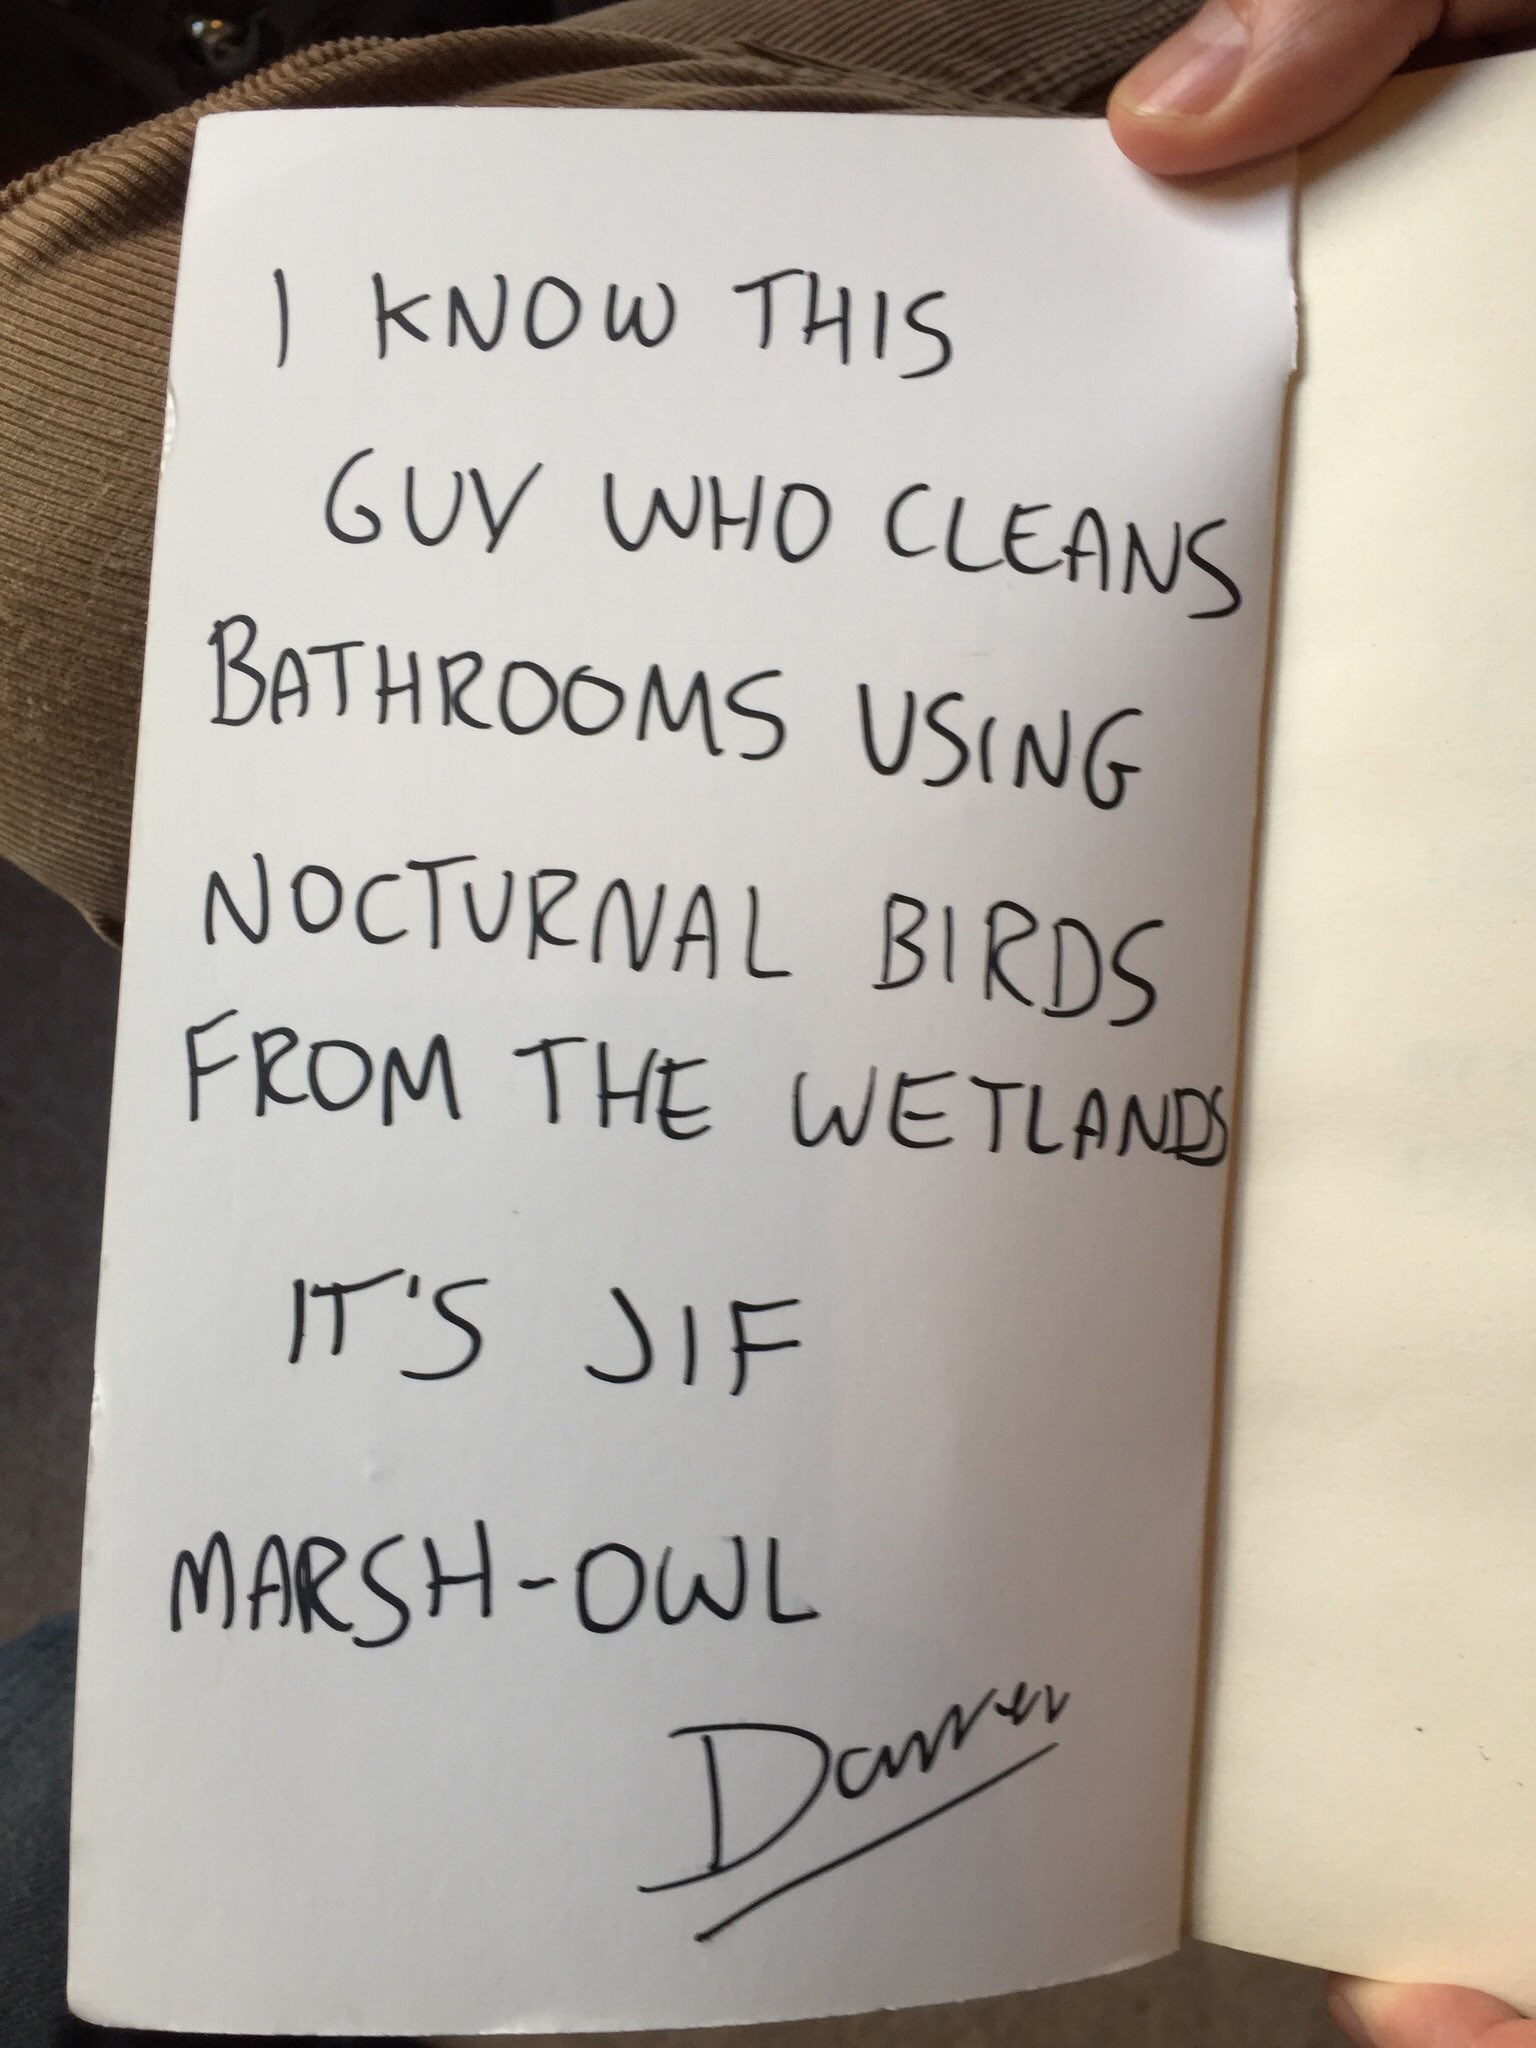 I KNOW THIS
GUY WHO CLEANS
BATHROOMS USING
NOCTURNAL BIRDS
FROM THE WETLANDS
IT'S JIF
MARSH-OWL
Darren